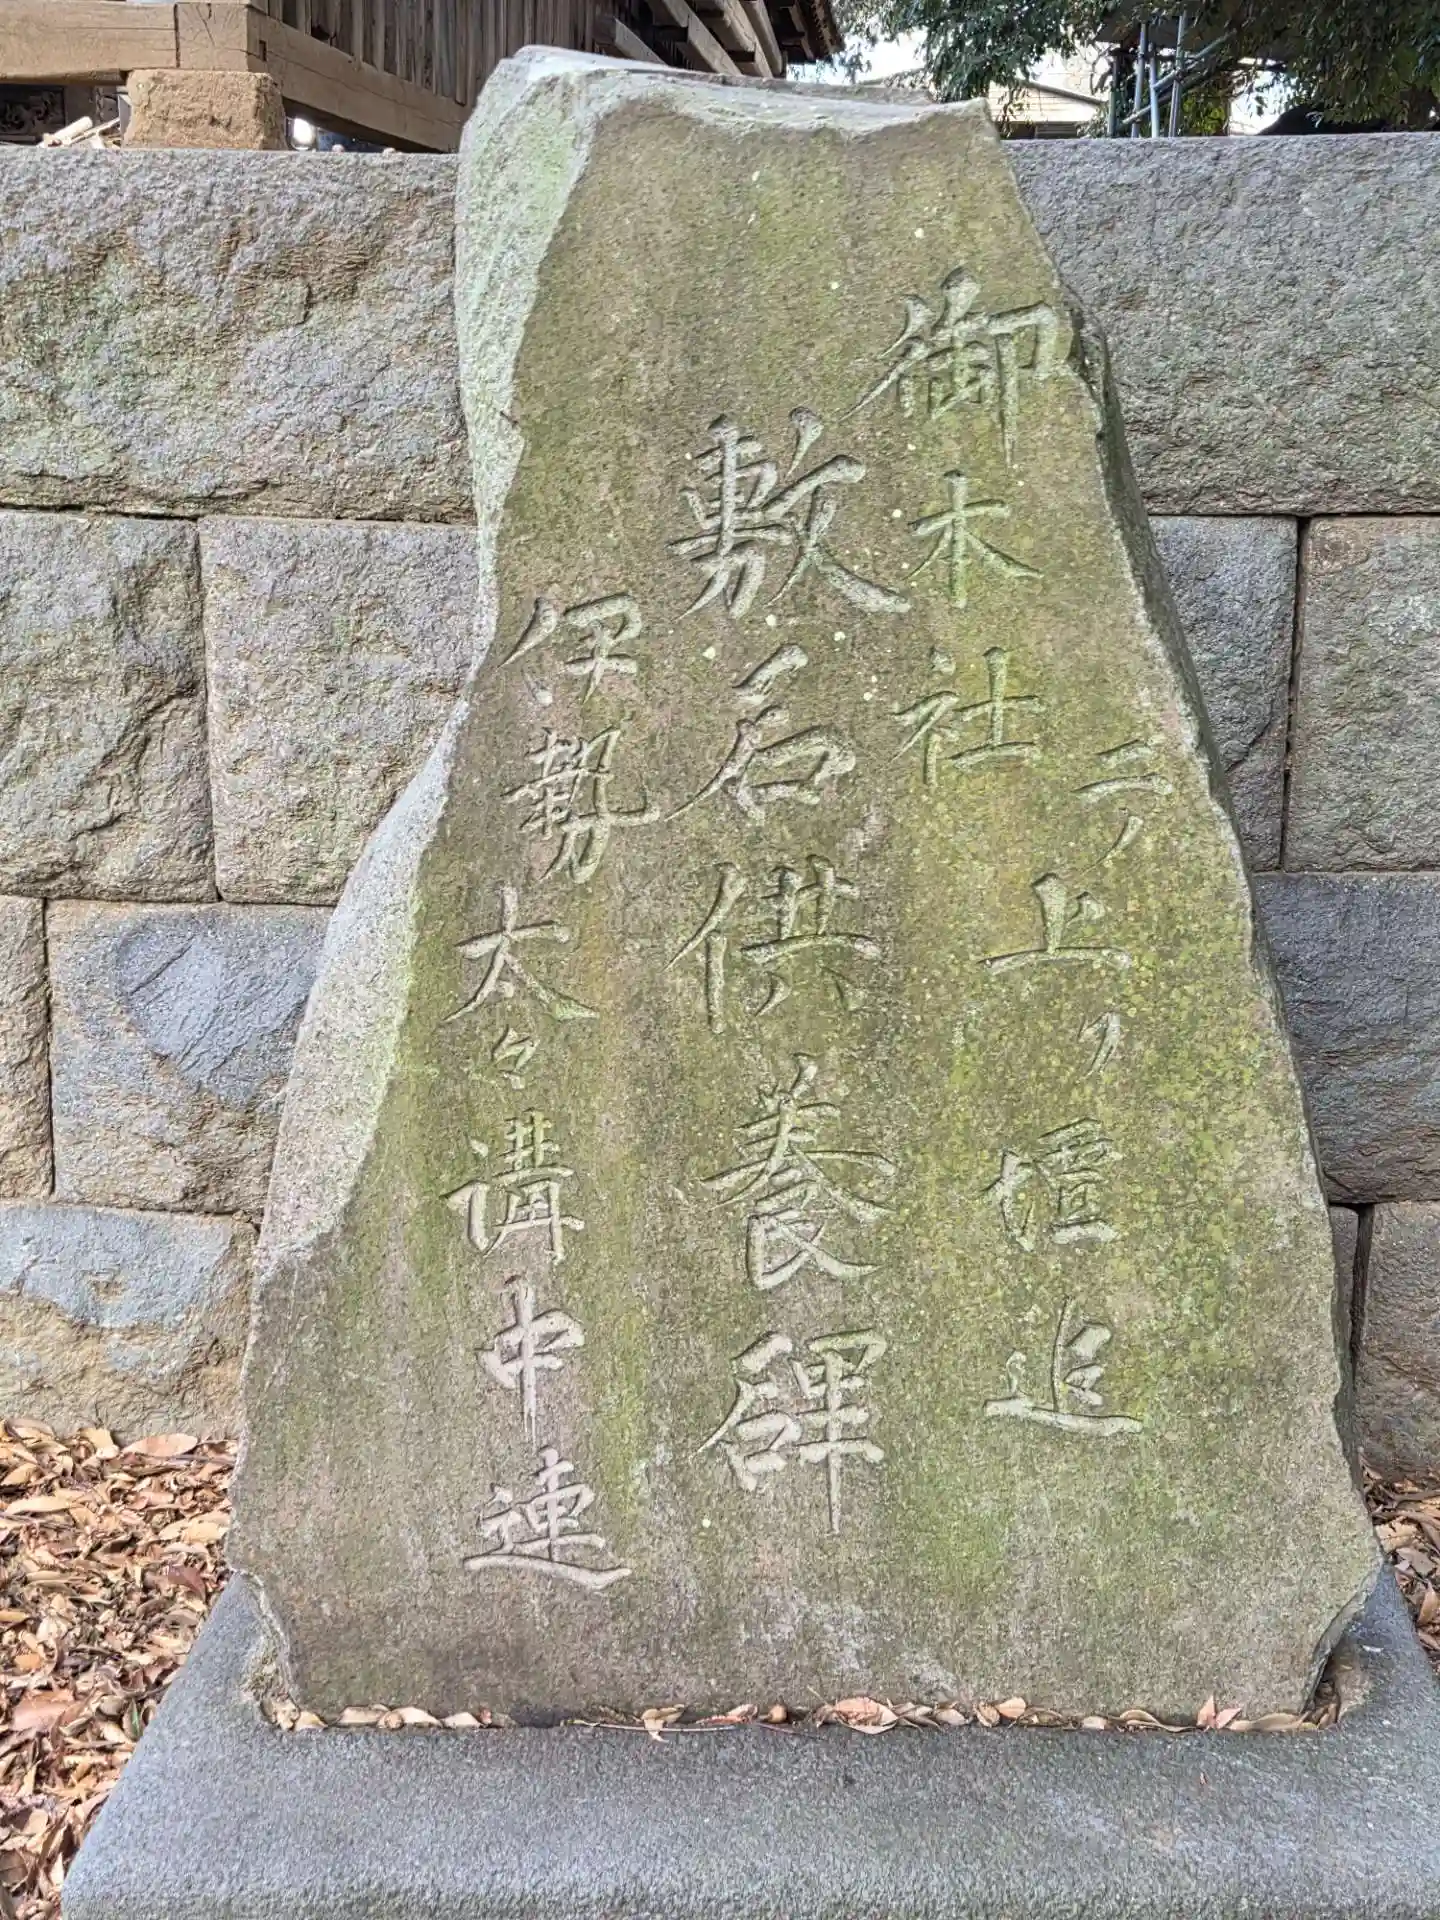 御木社
二ノ上ノ壇
敷石供養碑
伊勢太々講中連